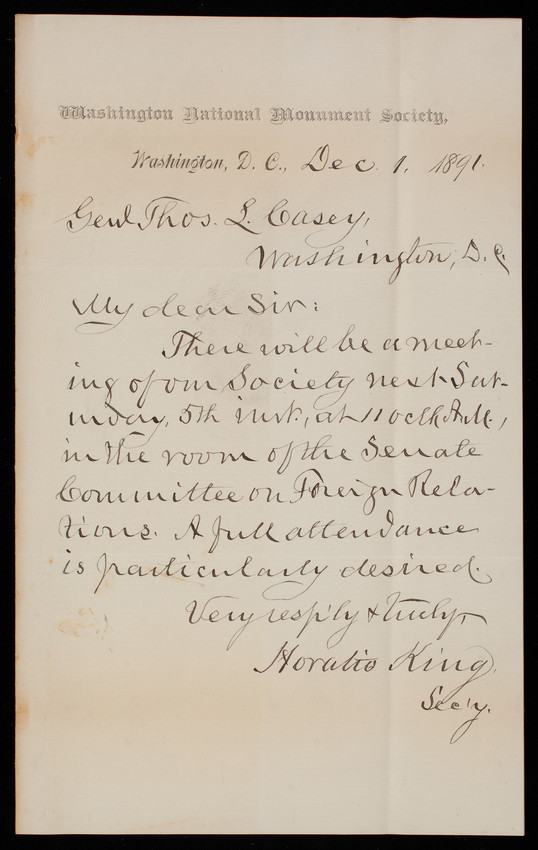 Washington National Monument Society,
Washington, D. C., Dec. 1, 1891.
Genl. Thos. L. Casey,
Washington, D. C.
My dear Sir:
There will be a meet-
ing of our Society next Sat-
urday, 5th inst., at 11 oclk A.M.,
in the room of the Senate
Committee on Foreign Rela-
tions. A full attendance
is particularly desired.
Very resp'ly & truly,
Horatio King,
Sec'y.